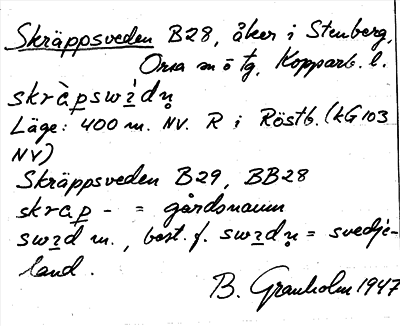 Skräppsveden B28, åker i Stenberg,
Orsa sn ö tg, Kopparb. l.
skràpswìdn̥
Läge: 400 m. NV. R i Röstb. (kG 103
NV)
Skräppsveden B29, BB28
skràp - = gårdsnamn
swid m., best. f. swidn̥ = svedje-
land.
B. Granholm 1947